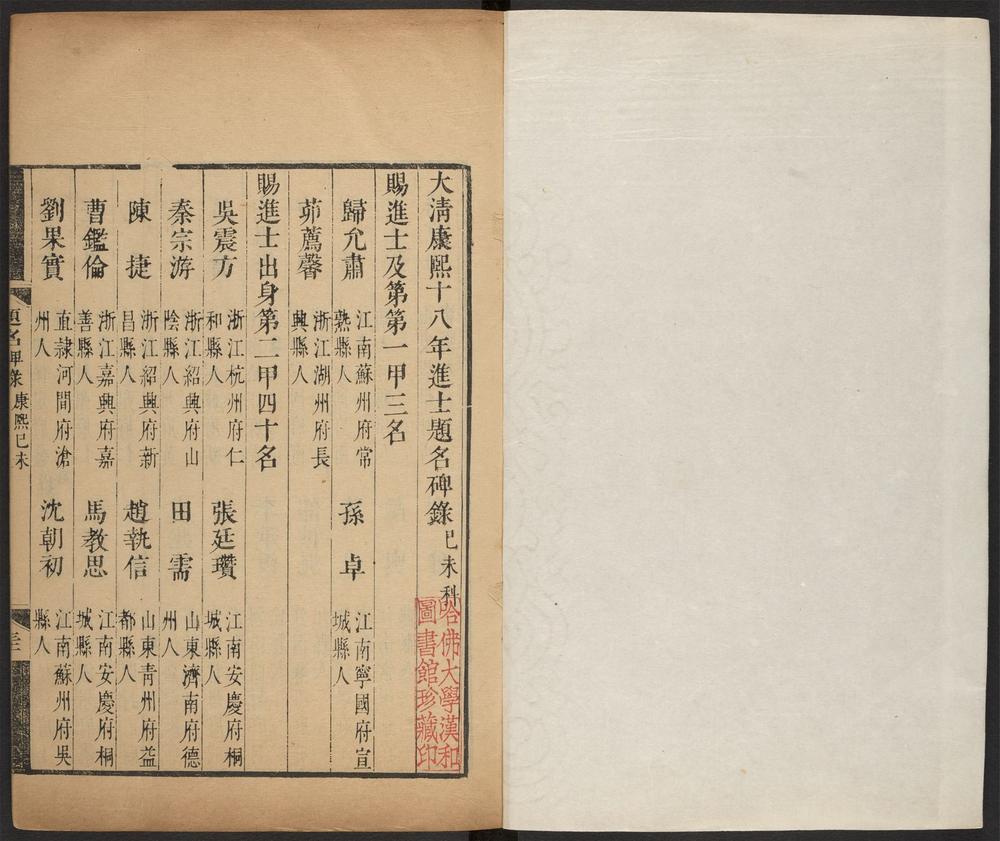 大淸康熙十八年進士題名碑錄己未科
賜進士及第第一甲三名
歸允肅 江南蘇州府常熟縣人 孫卓 江南寧國府宣城縣人
茆薦馨 浙江湖州府長興縣人
賜進士出身第二甲四十名
吳震方 浙江杭州府仁和縣人 張廷瓚 江南安慶府桐城縣人
秦宗游 浙江紹興府山陰縣人 田需 山東濟南府德州人
陳捷 浙江紹興府新昌縣人 趙執信 山東靑州府益都縣人
曹鑑倫 浙江嘉興府嘉善縣人 馬敎思 江南安慶府桐城縣人
劉果實 直隸河間府滄州人 沈朝初 江南蘇州府吳縣人
題名碑錄 康熙己未
哈佛大學漢和
圖書館珍藏印